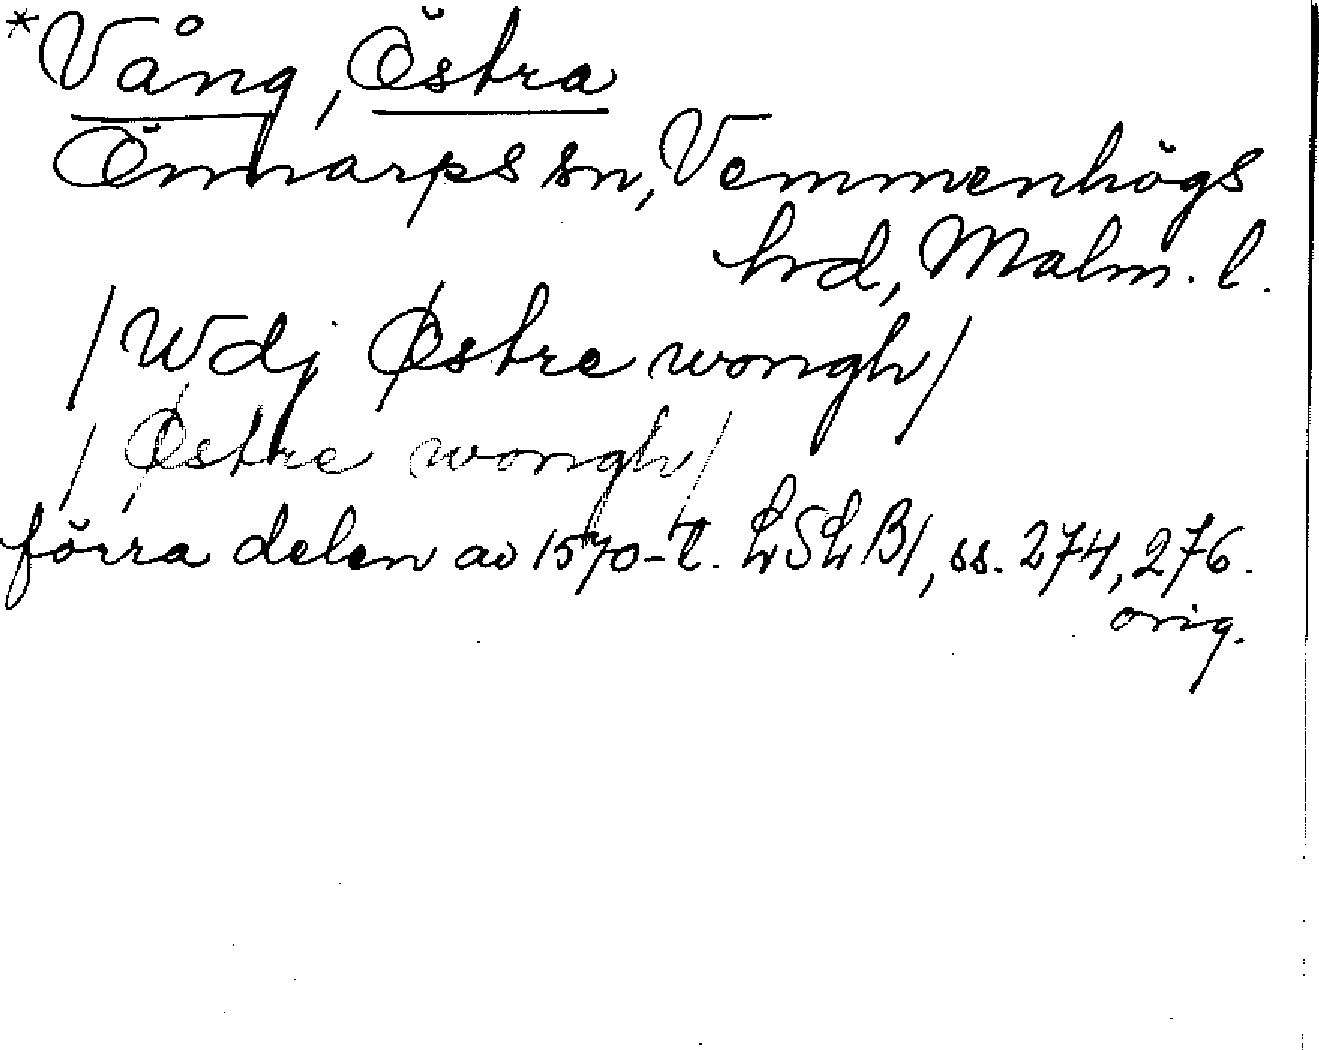 *Vång, Östra
Önnarps sn, Vemmenhögs
hrd, Malm. l.
/Wdj Østre wongh/
/Østre wongh/
förra delen av 1570-t. LSLB1, ss. 274, 276.
orig.